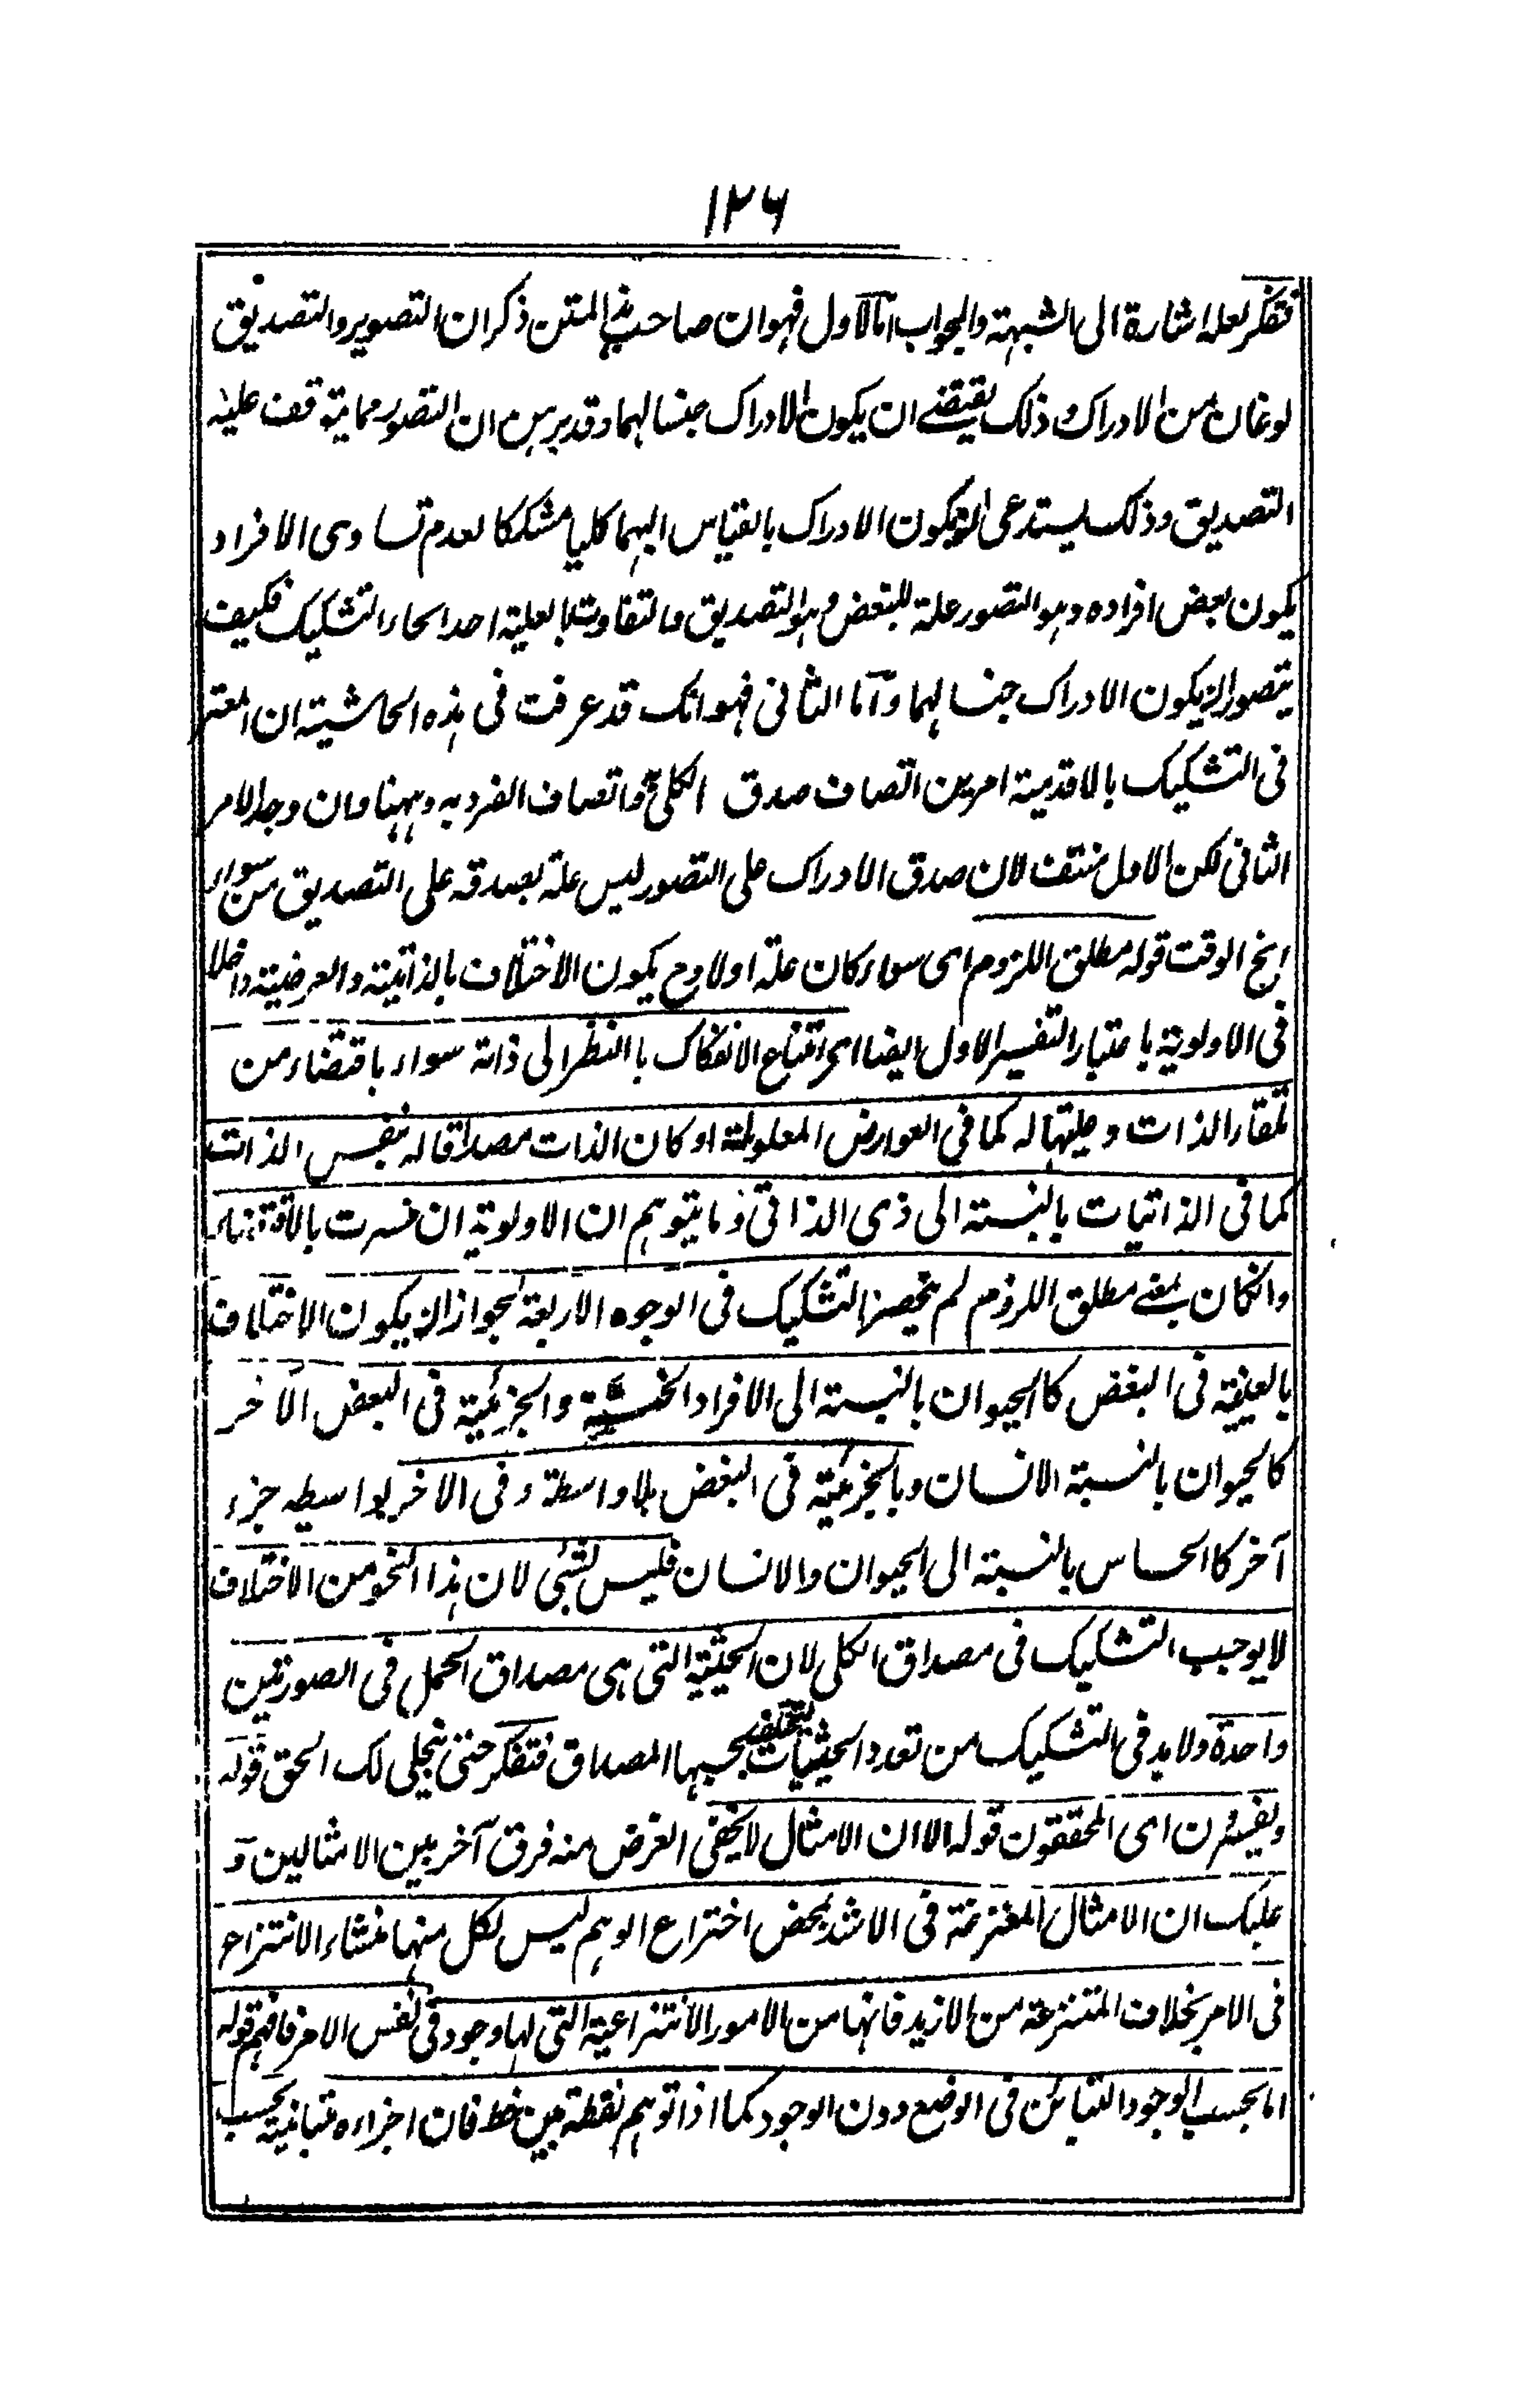 ١٢٦
فتفكر لعله اشارة الى الشبهة والجواب اما الاول فهو ان صاحب هذا المتن ذكر ان التصور والتصديق
نوعان من الادراك وذلك يقتضى ان يكون الادراك جنسا لهما وقد برهن ان التصور مما يتوقف عليه
التصديق وذلك يستدعى ان يكون الادراك بالقياس اليهما كليا مشككا لعدم تساوى الافراد
يكون بعض افراده وهو التصور علة للبعض وهو التصديق والتفاوت بالعلية احد انحاء التشكيك فكيف
يتصور ان يكون الادراك جنسا لهما واما الثانى فهو انك قد عرفت فى هذه الحاشية ان المعتبر
فى التشكيك بالاقدمية امرين اتصاف صدق الكلى واتصاف الفرد به وههنا وان وجد الامر
الثانى لكن الاول منتف لان صدق الادراك على التصور ليس علة لصدقه على التصديق من سوانح
الوقت قوله مطلق اللزوم اى سواء كان علة اولا وح يكون الاختلاف بالذاتية والعرضية داخلا
فى الاولوية باعتبار التفسير الاول ايضا اى امتناع الانفكاك بالنظر الى ذاته سواء باقتضاء من
تلقاء الذات وعليتها له كما فى العوارض المعلولة او كان الذات مصداقا له بنفس الذات
كما فى الذاتيات بالنسبة الى ذى الذاتى وما يتوهم ان الاولوية ان فسرت بالاقتضاء
وانكان بمعنى مطلق اللزوم لم ينحصر التشكيك فى الوجوه الاربعة لجواز ان يكون الاختلاف
بالعينية فى البعض كالحيوان بالنسبة الى الافراد الجنسية والجزئية فى البعض الآخر
كالحيوان بالنسبة الانسان وبالجزئية فى البعض بلا واسطة وفى الاخر بواسطه جزء
آخر كالحساس بالنسبة الى الحيوان والانسان فليس بشئى لان هذا النحو من الاختلاف
لا يوجب التشكيك فى مصداق الكلى لان الحيثية التى هى مصداق الحمل فى الصورتين
واحدة ولا بد فى التشكيك من تعدد الحيثيات يختلف بحسبها المصداق فتفكر حتى ينجلى لك الحق قوله
ويفسرون اى المحققون قوله الا ان الامثال لا يخفى الغرض منه فرق آخر بين الامثالين و
عليك ان الامثال المنتزعة فى الاشد بمحض اختراع الوهم ليس لكل منها منشاء الانتزاع
فى الامر بخلاف المنتزعة من الازيد فانها من الامور الانتزاعية التى لها وجود فى نفس الامر فافهم قوله
اما بحسب الوجود التبائن فى الوضع دون الوجود كما اذا توهم نقطة بين خط فان اجزاءه متبائنة بحسب